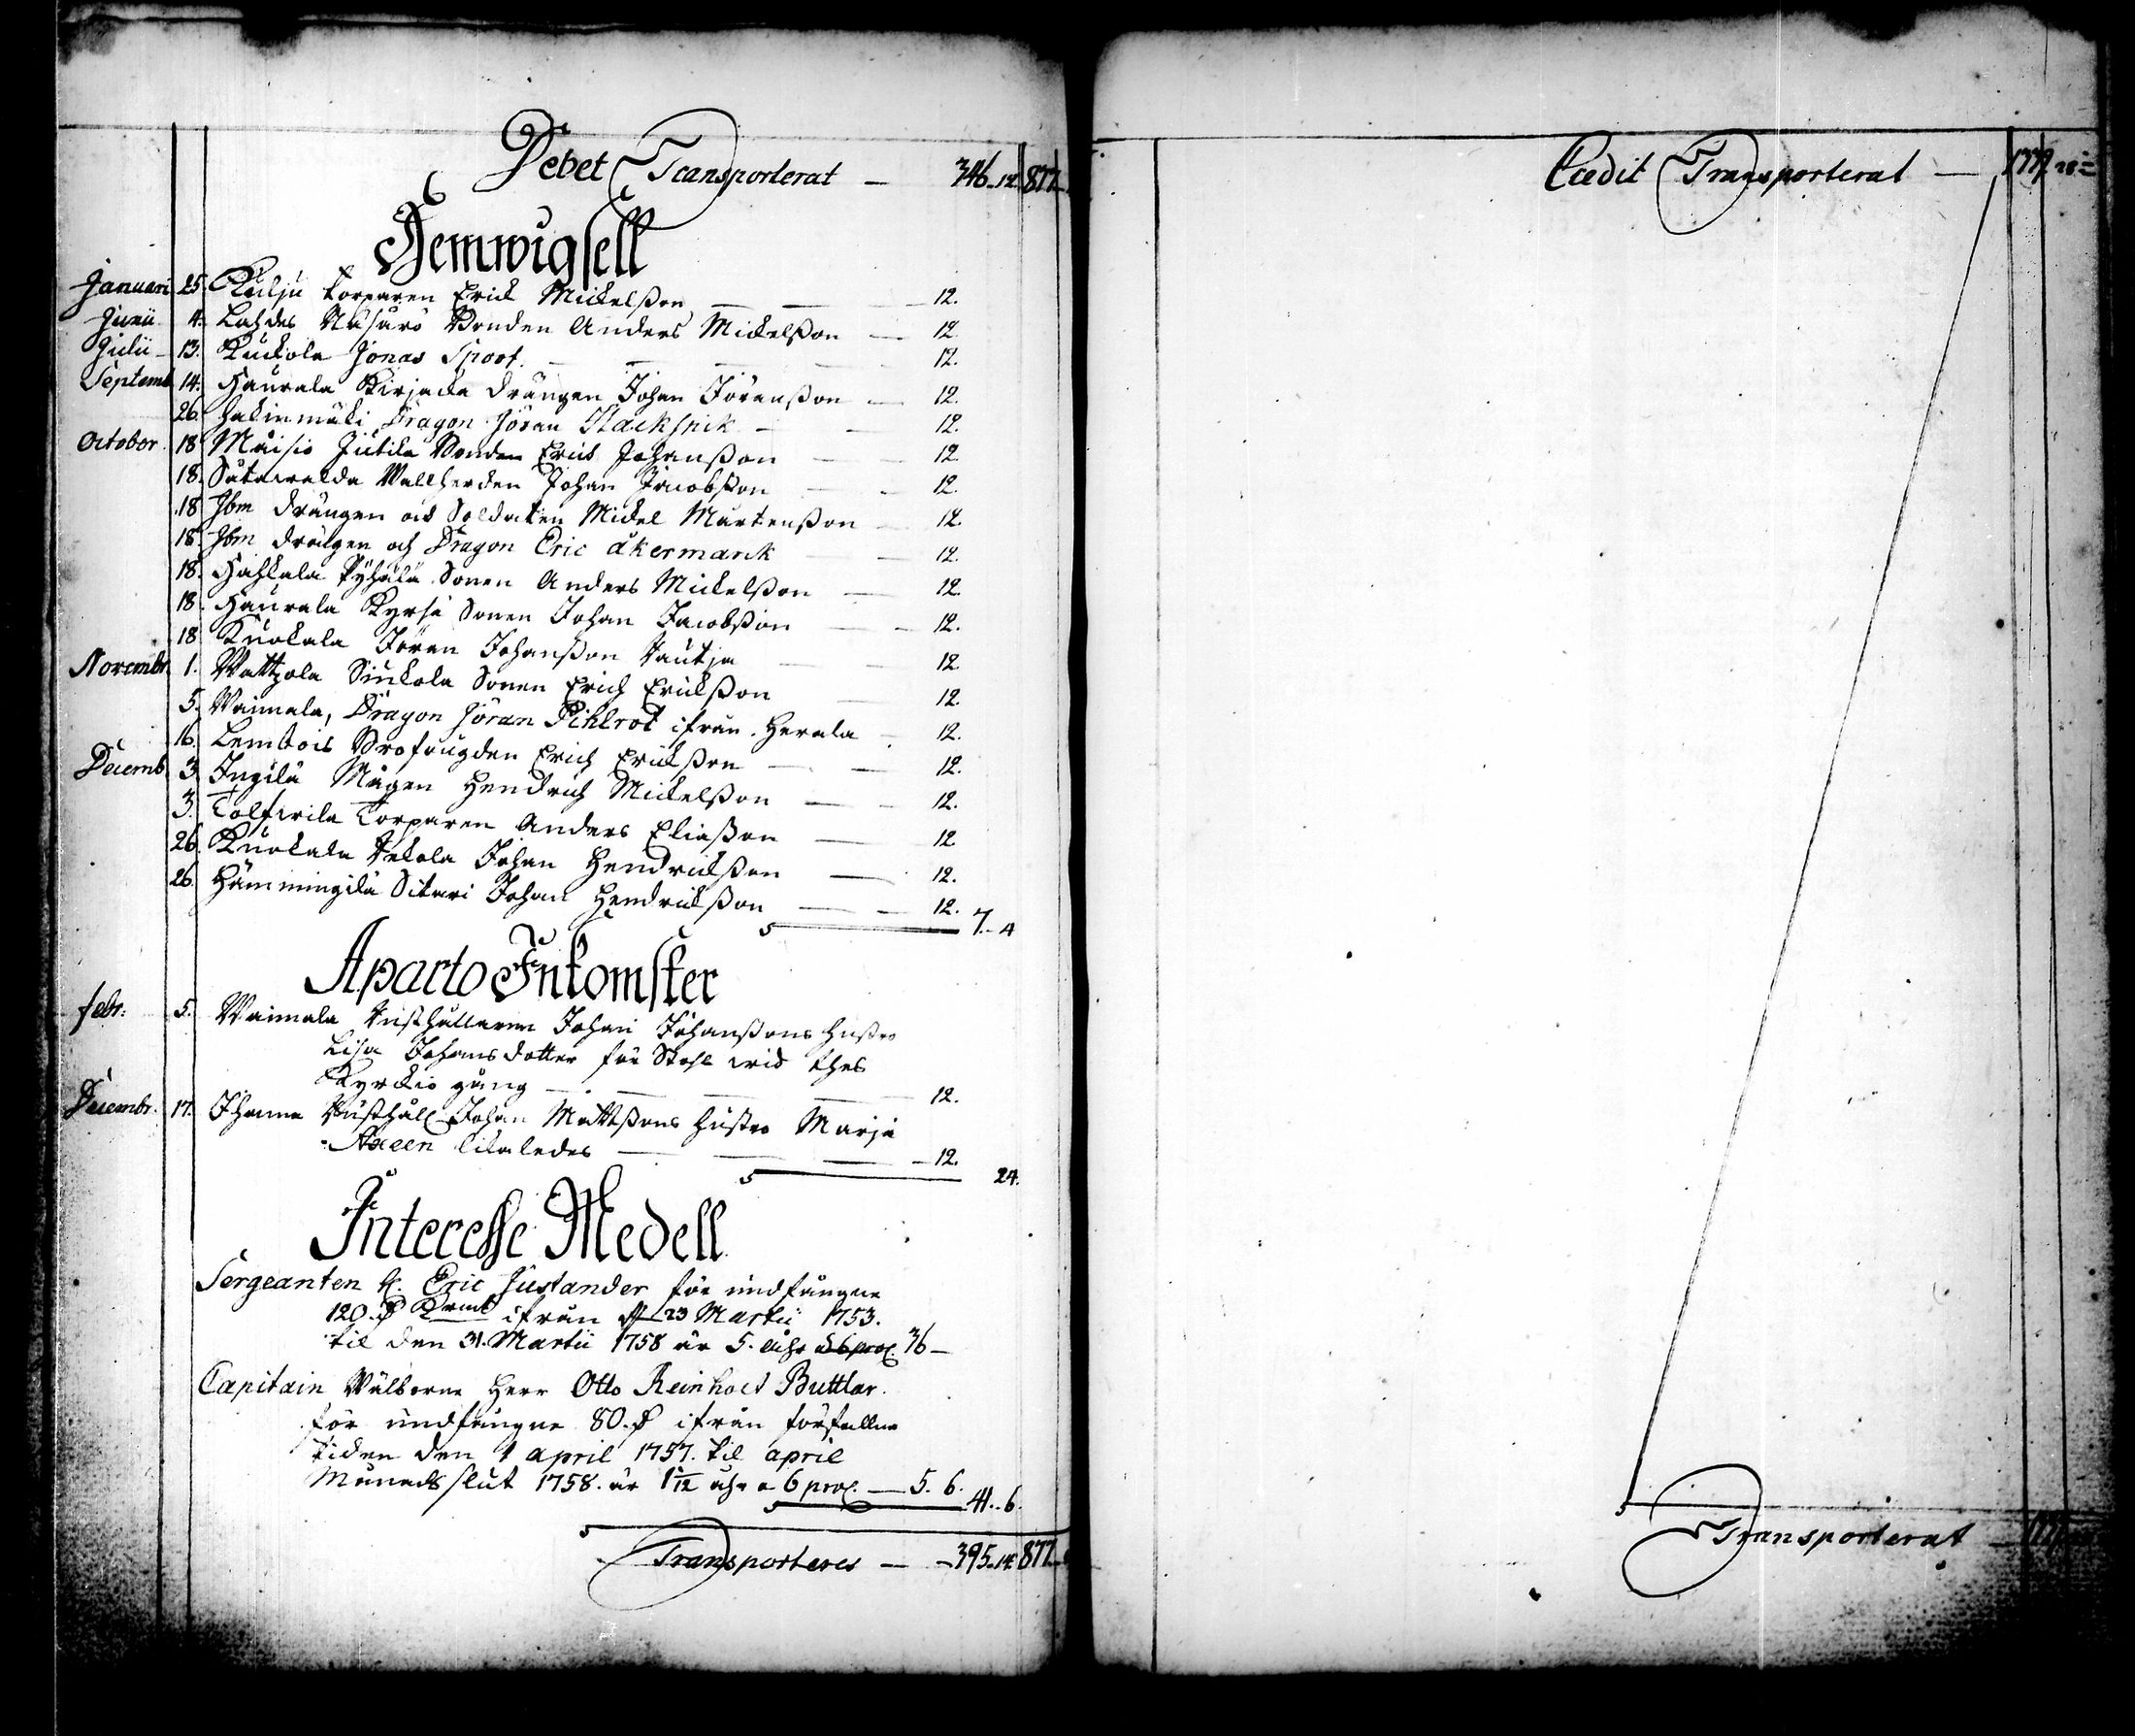 Debet Transporterat — 346. 14. 877.
Hemwigsell
Januari 25. Kulju torparen Erick Mickelßon — 12.
Junii 4. Lahdes Näsärö Bonden Anders Mickelßon — 12.
Julii 13. Kuckola Jonas Spoof. — 12.
Septemb. 14. Haurala Kirjaka drängen Johan Jöranßon — 12.
26. Hakinmäki Dragon Jöran Stacksnik — 12.
October 18 Maisio Jutila Bonden Erick Johanßon — 12.
18. Vallherden Johan Jacobßon — 12.
18 Ibm drängen och Soldaten Mickel Mårtenßon — 12.
18. Ibm drängen och Dragon Eric åkermanck — 12.
18. Hahkala Pyhälä Sonen Anders Mickelßon — 12.
18. Haurala Kyrfä Sonen Johan Jacobßon — 12.
18 Kuokala Jöran Johanßon Pautja — 12
Novembr. 1. Mattzola Sinkola Sonen Erich Erickßon — 12.
5. Vaimala, Dragon Jöran Pihlrot ifrån Herala — 12.
16. Lembois Brofougden Erich Erickßon — 12.
Decemb. 3 Ingilä Mågen Hendrich Mickelßon — 12.
3. Tolfwila Torparen Anders Eliaßon — 12
26. Kuokala Pekola Johan Hendrickßon — 12.
26. Hämmingilä Sitari Johan Hendrickßon — 12. 7. 4
Aparto Inkomster
Febr: 5. Waimala Rusthållaren Johan Johanßons hustro
Lisa Johansdotter för Stohl wid thes
Kyrckio gång — 12.
Decembr. 17. Rusthåll. Johan Mattßons hustro Marja
likaledes — 12. 24.
Interesse Medell
Sergeanten H. Eric Justander för undfångne
120. D Kmt ifrån d 23 Martii 1753.
til den 31. Martii 1758 är 5. åhr a 6 proc. 36 —
Capitain Wälborne Herr Otto Reinholt Buttlar.
för undfångne 80. D ifrån förfallne
tiden den 1 april 1757. til april
Månads slut 1758. är 1 1/12 åhr a 6 proc. — 5. 6. 41. 6.
Transporteres — 395. 14 877.
Credit Transporterat — 1779. 28
Transporterat —